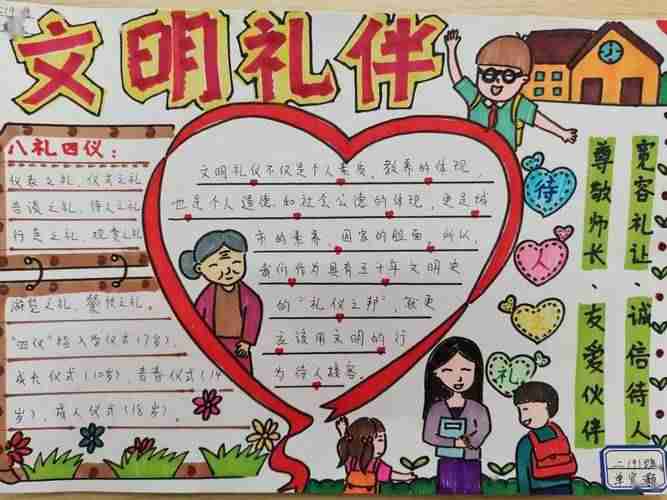 文明礼伴
八礼四仪：
仪表之礼、仪式之礼
言谈之礼、待人之礼
行走之礼、观赏之礼
游览之礼、餐饮之礼。
"四仪"指入学仪式（7岁），
成长仪式（10岁），青春仪式（14
岁），成人仪式（18岁）。
文明礼仪不仅是个人素质，教养的体现，
也是个人道德和社会公德的体现，更是城
市的素养，国家的脸面，所以，
我们作为具有五千年文明史
的"礼仪之邦"，就更
应该用文明的行
为待人接客。
待
人
礼
宽容礼让、诚信待人
尊敬师长、友爱伙伴